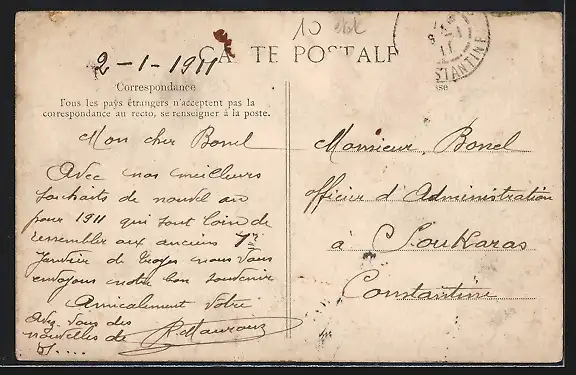 10
2-1-1911
CARTE POSTALE
Correspondance
Tous les pays étrangers n'acceptent pas la
correspondance au recto, se renseigner à la poste.
Mon cher Bonel
Avec nos meilleurs
souhaits de nouvel an
pour 1911 qui sont loin de
ressembler aux anciens 1er
Janvier de nous vous
envoyons notre bon souvenir
Amicalement votre
Avez-vous des
nouvelles de
Monsieur Bonel
officier d'Administration
à Soukaras
Constantine
STANTINE